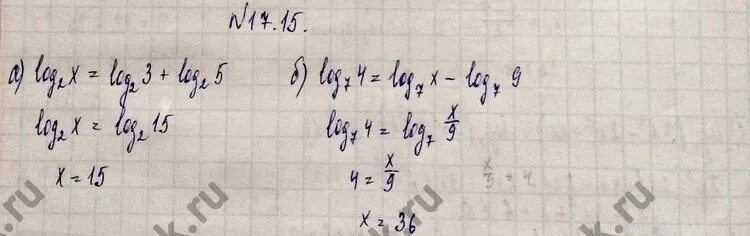 №17.15.
а) log₂x = log₂3 + log₂5
log₂x = log₂15
x = 15
б) log₇4 = log₇x − log₇9
log₇4 = log₇ x/9
4 = x/9
x = 36
x/3 = 4
k.ru
k.ru